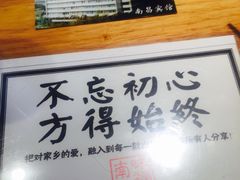 南昌宾馆
不忘初心
方得始终
把对家乡的爱，融入到每一
人分享！
南